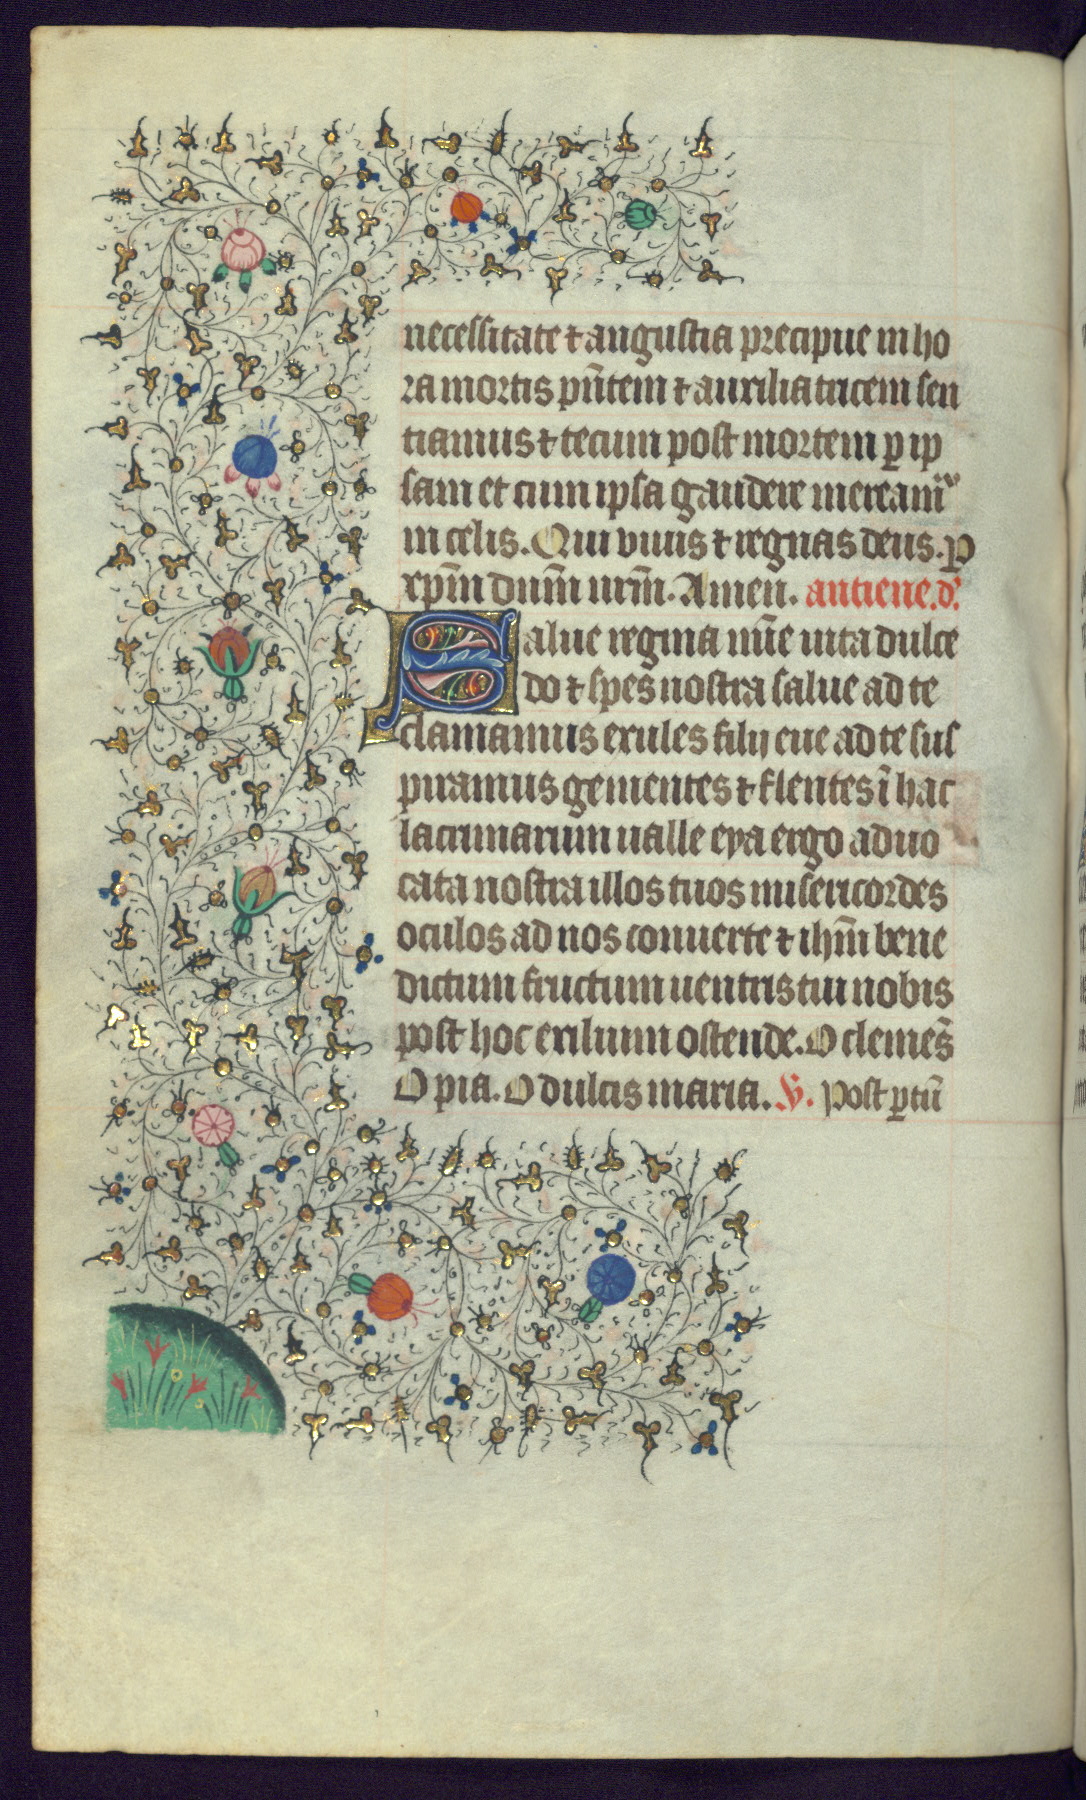 necessitate ⁊ angustia precipue in ho
ra mortis pn̄tem ⁊ auxiliatricem sen
tiamus ⁊ tecum post mortem ꝑ ip
sam et cum ipsa gaudere meream̄ᷣ
in celis. Qui viuis ⁊ regnas deus. P
xp̄m dnm̄ nrm̄. Amen. antiene. d'.
Salue regina mīe vita dulce
do ⁊ spes nostra salue ad te
clamamus exules filij eue ad te sus
piramus gementes ⁊ flentes ī hac
lacrimarum ualle eya ergo aduo
cata nostra illos tuos misericordes
oculos ad nos conuerte ⁊ ihm̄ bene
dictum fructum uentris tui nobis
post hoc exilium ostende. O clemēs
O pia. O dulcis maria. V. Post ꝑtū